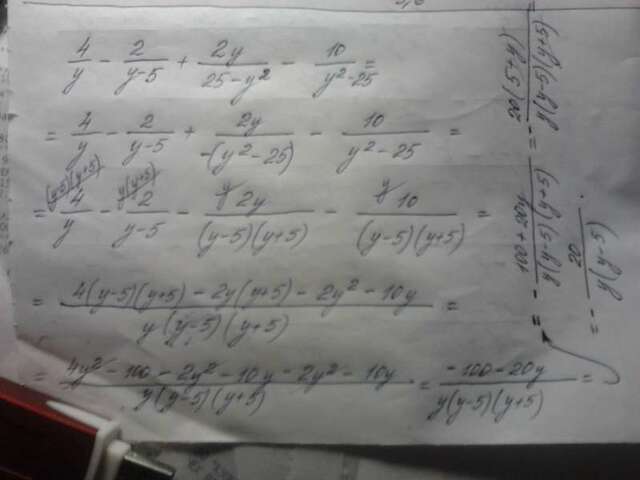 4/y - 2/(y-5) + 2y/(25-y²) - 10/(y²-25) =
= 4/y - 2/(y-5) + 2y/(-(y²-25)) - 10/(y²-25) =
= (y-5)(y+5) 4/y - y(y+5) 2/(y-5) - y 2y/((y-5)(y+5)) - y 10/((y-5)(y+5)) =
= (4(y-5)(y+5) - 2y(y+5) - 2y² - 10y)/(y(y-5)(y+5)) =
= (4y² - 100 - 2y² - 10y - 2y² - 10y)/(y(y-5)(y+5)) = (-100-20y)/(y(y-5)(y+5)) =
= - (100+20y)/(y(y-5)(y+5)) = - 20(5+y)/(y(y-5)(y+5)) =
= - 20/(y(y-5)).